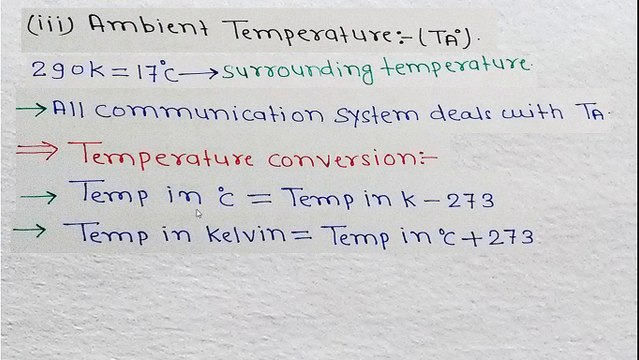 (iii) Ambient Temperature:-(TA°).
290k = 17°c → surrounding temperature.
→ All communication system deals with TA.
⇒ Temperature conversion:-
→ Temp in °c = Temp in k - 273
→ Temp in kelvin = Temp in °c + 273